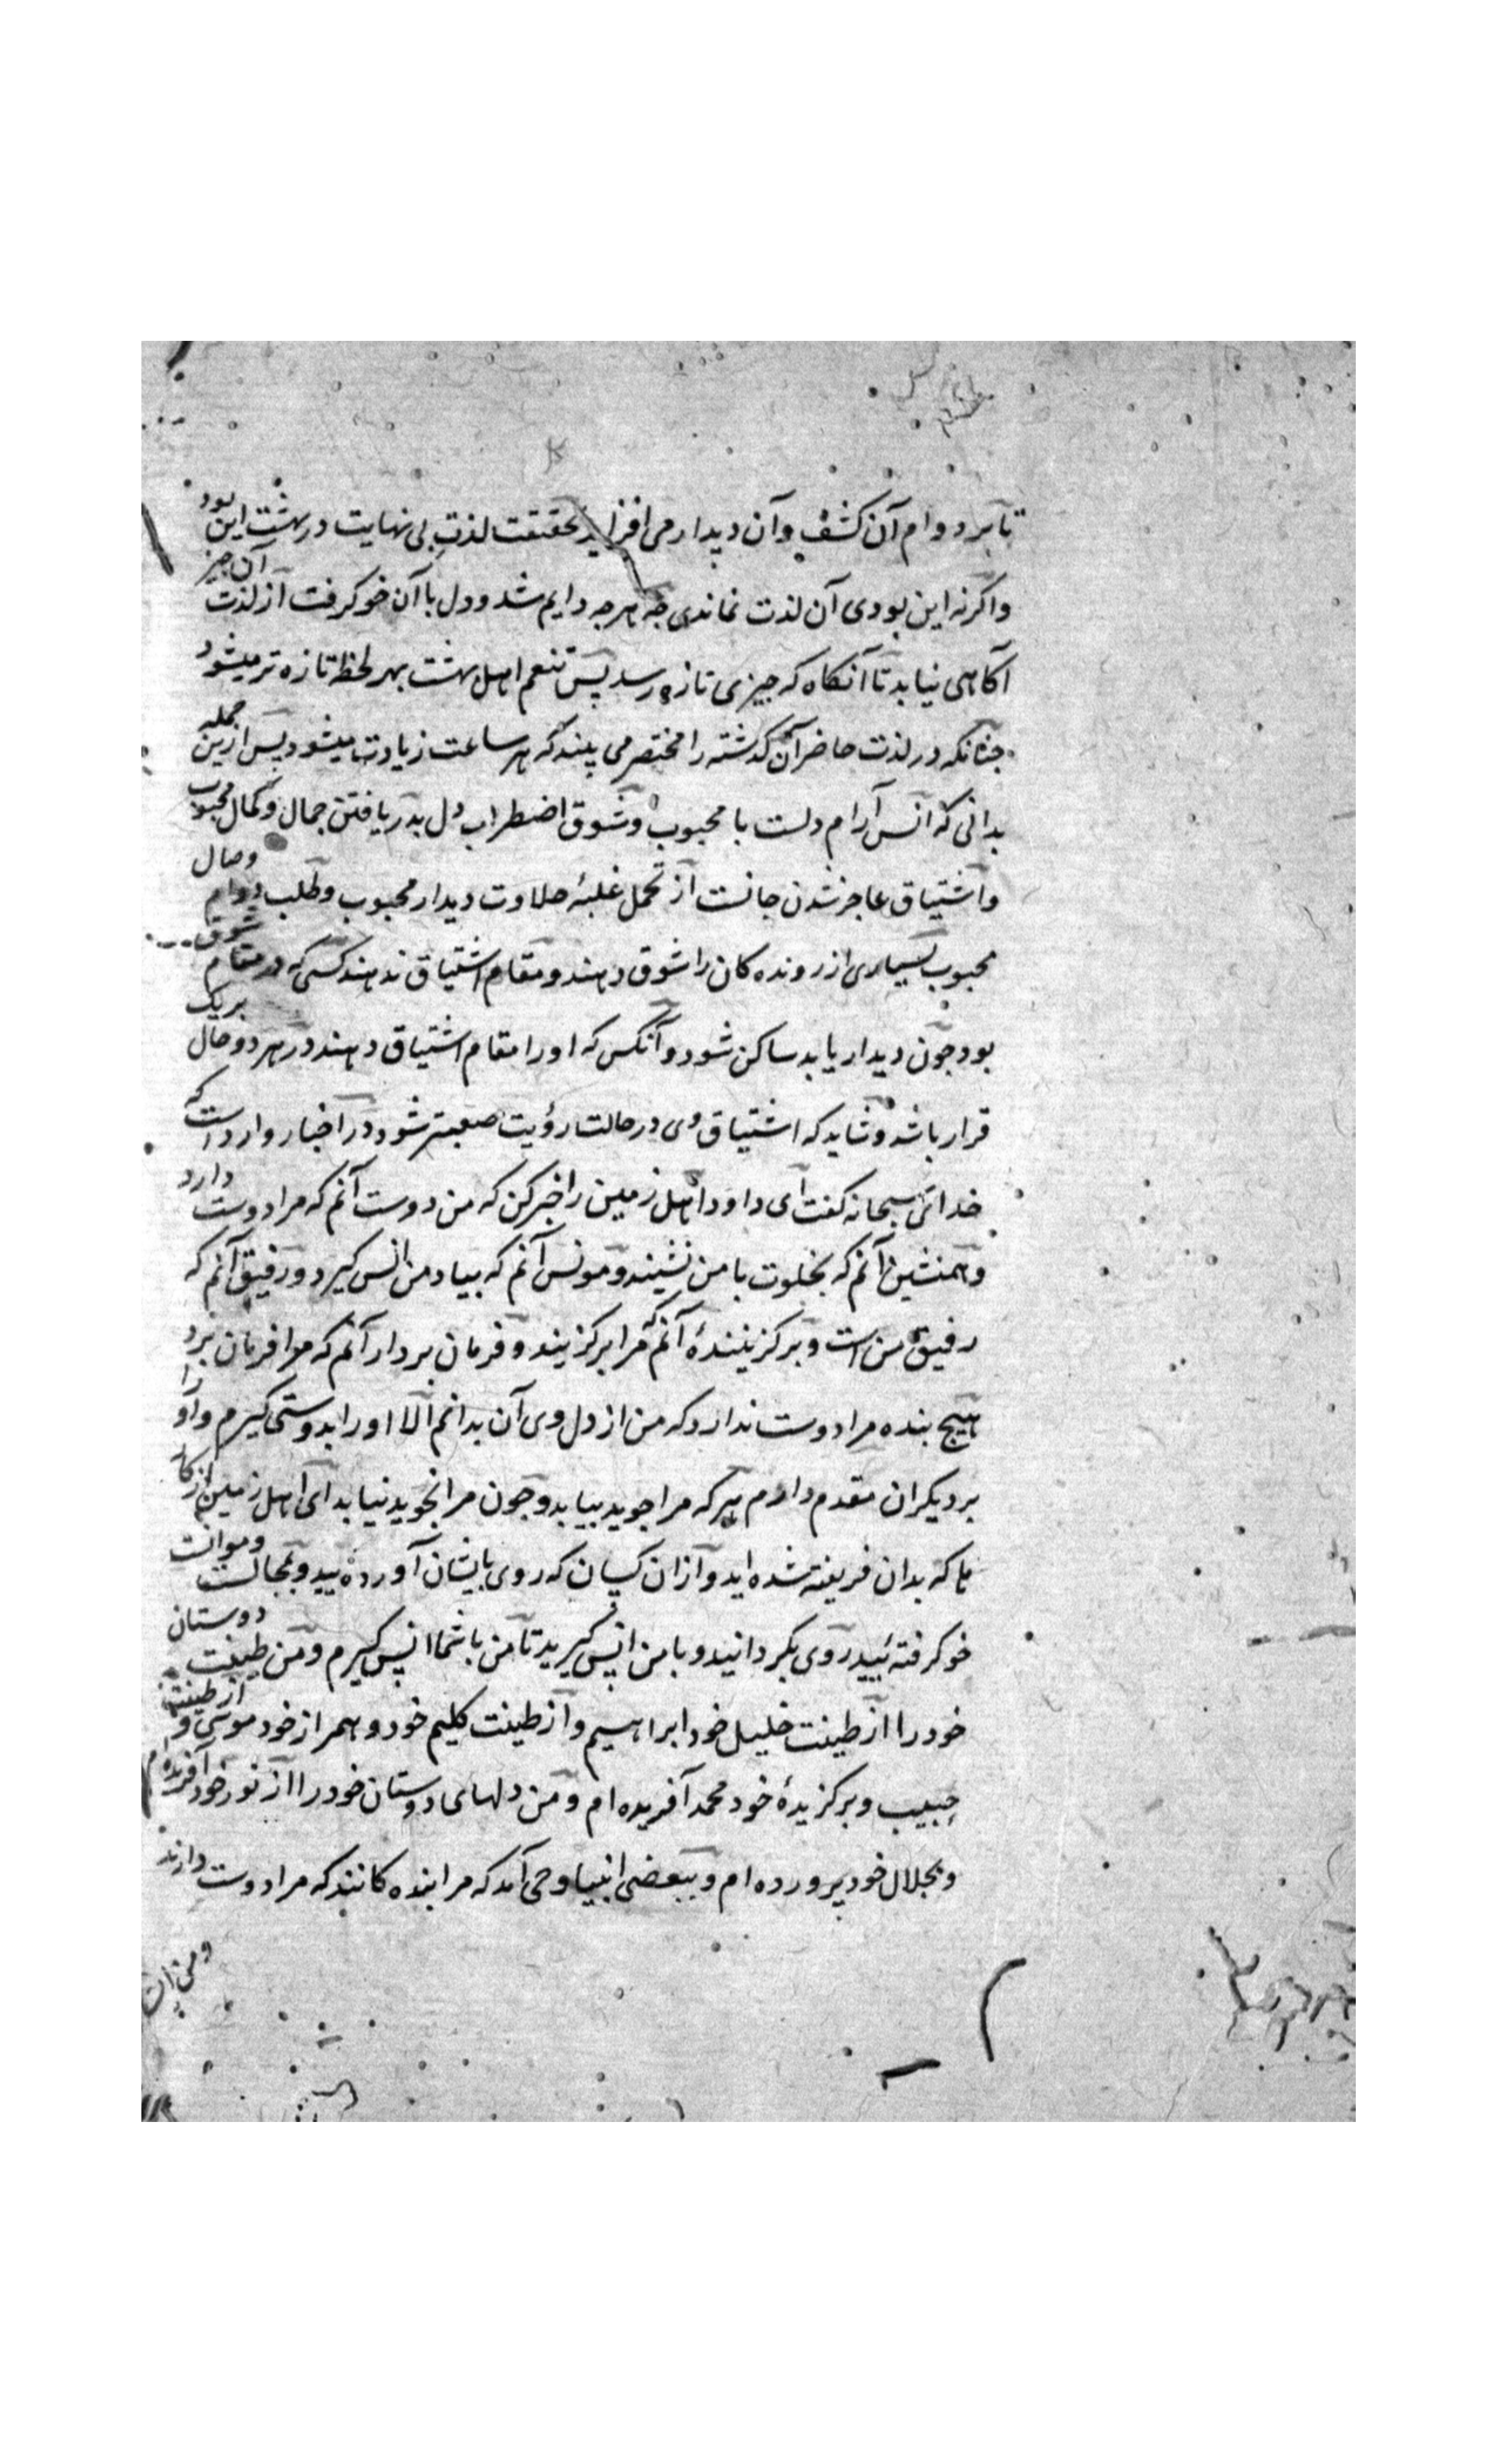 تا بر دوام آن کشف وآن دیدار می افزاید بحقیقت لذتِ بی نهایت در بهشت این بود
واکرنه این بودی آن لذت نماندی جه هرجه دایم شد ودل با آن خو کرفت از لذت آن جیز
آکاهی نیابد تا آنکاه که جیزی تازه رسد پس تنعم اهل بهشت بهر لحظه تازه تر میشود
جنانکه در لذت حاضر آن کذشته را مختصر می بیند که هر ساعت زیادت میشود پس ازین جمله
بدانی که انس آرام دلست با محبوب وشوق اضطراب دل بدریافتن جمال وکمال محبوب
واشتیاق عاجز شدن جانست از تحمل غلبهٔ حلاوت دیدار محبوب وطلب دوام وصال
محبوب بسیاری از رونده کان را شوق دهند ومقام اشتیاق ندهند کسی که در مقام شوق
بود جون دیدار یابد ساکن شود وآنکس که او را مقام اشتیاق دهند در هر دو حال بریک
قرار باشد وشاید که اشتیاق وی در حالت رؤیت صعبتر شود در اخبار وارد است که
خدای سبحانه کفت ای داود اهل زمین را خبر کن که من دوست آنم که مرا دوست دارد
وهمنشین آنم که بخلوت با من نشیند ومونس آنم که بیاد من انس کیرد ورفیق آنم که
رفیق من است وبرکزینندهٔ آنم که مرا برکزیند وفرمان بردار آنم که مرا فرمان برد
هیج بنده مرا دوست ندارد که من از دل وی آن بدانم الا او را بدوستی کیرم واو را
بر دیکران مقدم دارم هرکه مرا جوید بیابد وجون مرا نجوید نیابد ای اهل زمین از
ها که بدان فریفته شده اید وازان کسان که روی بایشان آورده یید وبمجالست وموانست
خو کرفته ئیید روی بکردانید وبا من انس کیرید تا من با شما انس کیرم ومن طینت دوستان
خود را از طینت خلیل خود ابراهیم واز طینت کلیم خود وهمراز خود موسی واز طینت
حبیب وبرکزیدهٔ خود محمد آفریده ام ومن دلهای دوستان خود را از نور خود آفریده ام
وبجلال خود پرورده ام وببعضی انبیا وحی آمد که مرا بنده کانند که مرا دوست دارند